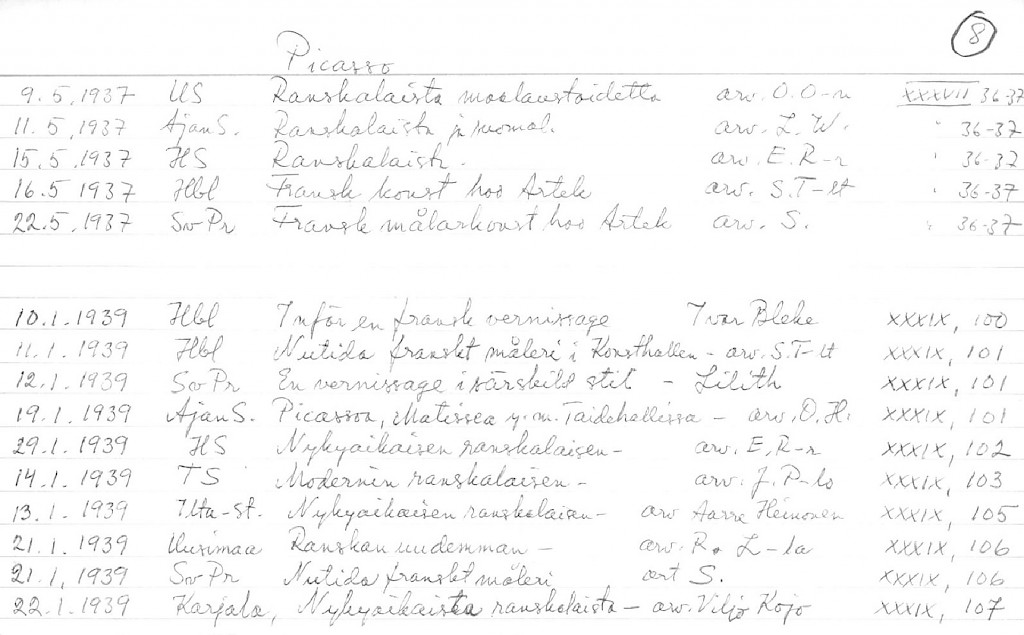 8
Picasso
9.5.1937 US Ranskalaista maalaustaidetta arv. O.O-n XXXVII 36-37
11.5.1937 AjanS. Ranskalaista ja suomal. arv. L.W. " 36-37
15.5.1937 HS Ranskalaist. arv. E.R-r " 36-37
16.5.1937 Hbl Fransk konst hos Artek arv. S.T-lt " 36-37
22.5.1937 SvPr Fransk målarkonst hos Artek arv. S. " 36-37
10.1.1939 Hbl Inför en fransk vernissage Ivar XXXIX, 100
11.1.1939 Hbl Nutida franskt måleri i Konsthallen - arv. S.T-lt XXXIX, 101
12.1.1939 SvPr En vernissage i särskild stil - Lilith XXXIX, 101
19.1.1939 AjanS. Picassoa, Matissea y.m. Taidehallissa - arv. O.H. XXXIX, 101
29.1.1939 HS Nykyaikaisen ranskalaisen - arv. E.R-r XXXIX, 102
14.1.1939 TS Modernin ranskalaisen - arv. J.P-lo XXXIX, 103
13.1.1939 Ilta-st. Nykyaikaisen ranskalaisen - arv Aarre Heinonen XXXIX, 105
21.1.1939 Uusimaa Ranskan uudemman - arv. R. L-la XXXIX, 106
21.1.1939 SvPr Nutida franskt måleri art S. XXXIX, 106
22.1.1939 Karjala, Nykyaikaista ranskalaista - arv. Viljo Kojo XXXIX, 107